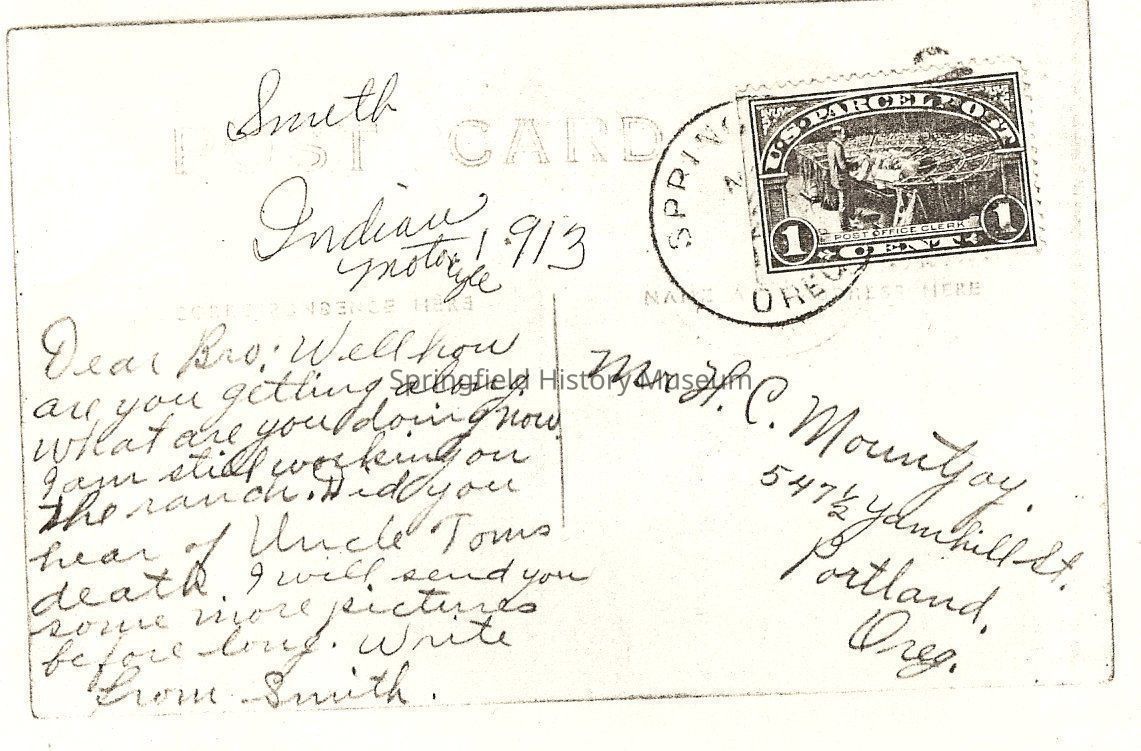 Smith
POST CARD
Indian
Motorcycle 1913
CORRESPONDENCE HERE
NAME AND ADDRESS HERE
SPRING
OREG
U.S. PARCEL POST
POST OFFICE CLERK
1 CENT 1
Springfield History Museum
Dear Bro: Well how
are you getting along.
What are you doing now.
I am still working on
the ranch. Did you
hear of Uncle Toms
death. I will send you
some more pictures
before long. Write
from Smith.
Mr. H. C. Mountjoy
547½ Yamhill St.
Portland,
Oreg.